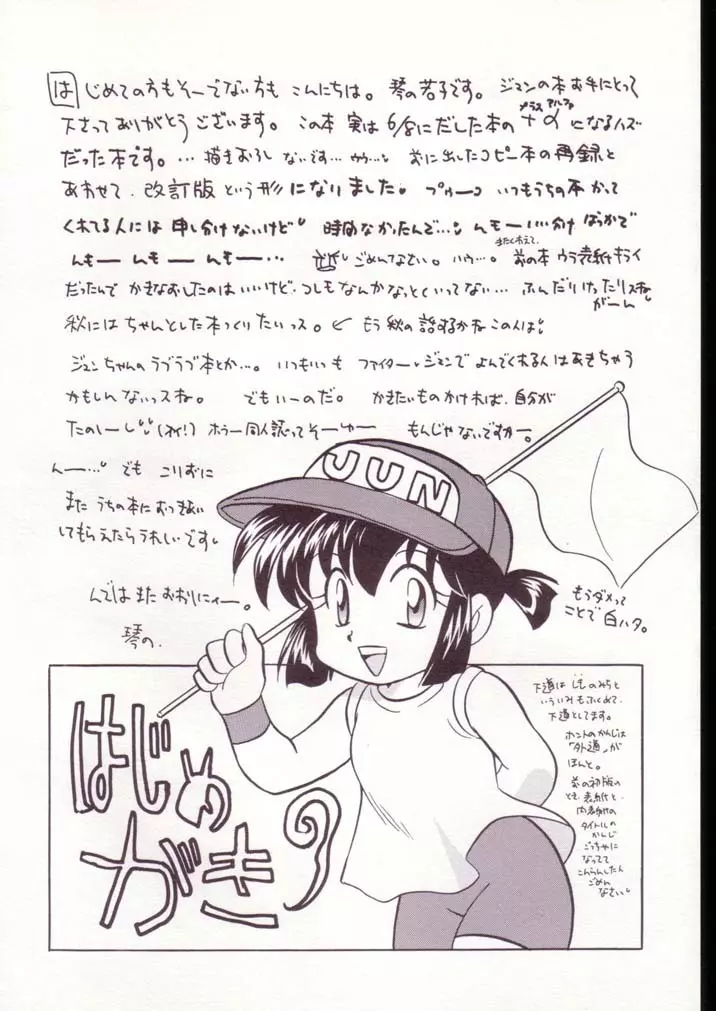 はじめての方もそーでない方も こんにちは。琴の若子です。 ジュンの本お手にとって
下さってありがとうございます。 この本 実は6/8にだした本の +α になるハズ
プラス アルファ
だった本です。… 描きおろし ないです… ウウ…。 前に出したコピー本の再録と
あわせて、改訂版 という形になりました。 いつもうちの本 かって
くれてる人には 申し分けないけど 時間なかったんで…。 んもー いい分け ばっかで
んもー んもー んもー… ごめんなさい。ハウ…。 前の本 ウラ表紙 キライ
だったんで かきなおしたのは いいけど、 なんか なっとくいってない… ふんだりけったりスね
がーん
秋には ちゃんとした本つくりたいっス。 ← もう秋の話するかねこの人は
ジュンちゃんのラブラブ本とか…。 いつもいつも ファイター・ジュンで よんでくれる人は あきちゃう
かもしんないっスね。 でもいーのだ。 かきたいものかければ、自分が
たのしーし (オイ!) ホラー同人誌ってそーゆー もんじゃないですかー。
んー…。 でも こりずに
また うちの本に おつきあい
してもらえたら うれしいです
んでは また おおしにィー。
琴の.
JUN
もうダメって
ことで 白ハタ。
はじめ
がき
下道は しものみちと
いういみもふくめて、
下道としてます。
ホントのかんじは
「外道」が
ほんと。
前の初版の
とき、表紙と
内表紙の
タイトルの
かんじ
ごっちゃに
なってて
こんらんしたん
ごめん
なさい